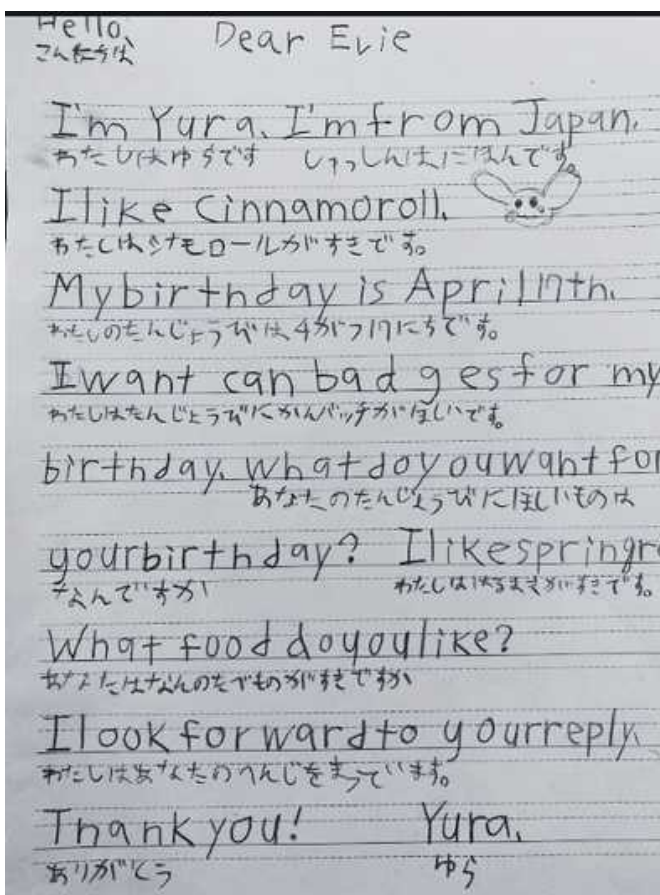 Hello, Dear Evie
こんにちは
I'm Yura. I'm from Japan.
わたしはゆらです しゅっしんはにほんです。
I like Cinnamoroll.
わたしはシナモロールがすきです。
My birthday is April 17th.
わたしのたんじょうびは4がつ17にちです。
I want can bad ges for my
わたしはたんじょうびにかんバッチがほしいです。
birthday. What do you want for
あなたのたんじょうびにほしいものは
your birthday? I like spring
なんですか わたしははるまきがすきです。
What food do you like?
あなたはなんのたべものがすきですか
I look forward to your reply.
わたしはあなたのへんじをまっています。
Thank you! Yura.
ありがとう ゆら